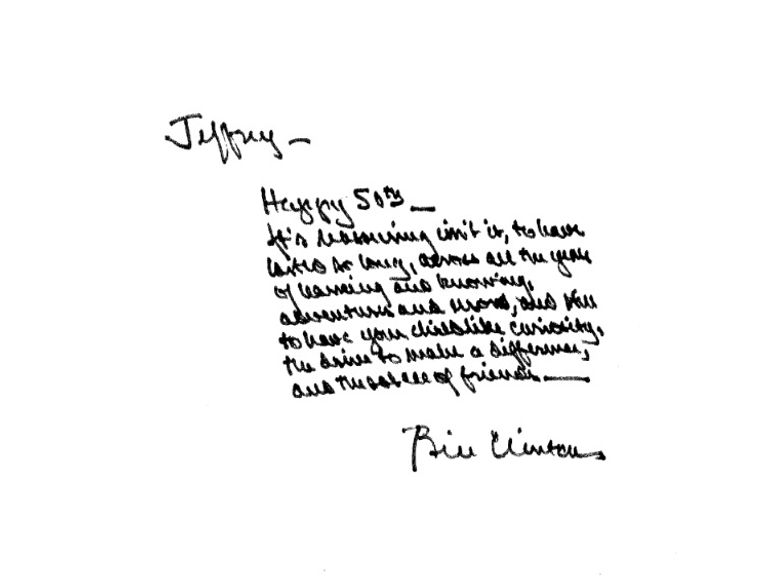 Jeffrey —
Happy 50th —
It's reassuring isn't it, to have
lasted so long, across all the years
of learning and knowing,
adventures and more, and still
to have your childlike curiosity,
the drive to make a difference,
and the solace of friends —
Bill Clinton